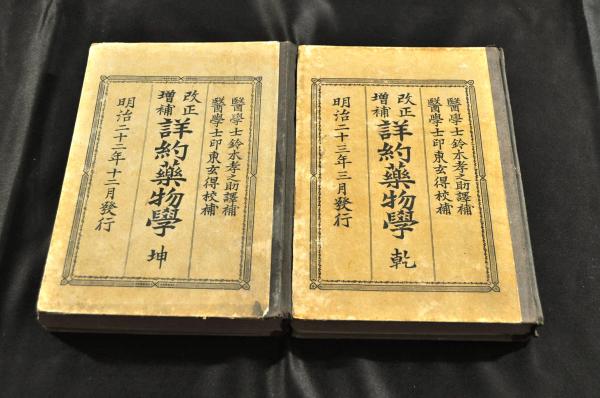 醫學士鈴木孝之助譯補
醫學士印東玄得校補
改正
增補
詳約藥物學 乾
明治二十三年三月發行
醫學士鈴木孝之助譯補
醫學士印東玄得校補
改正
增補
詳約藥物學 坤
明治二十二年十二月發行